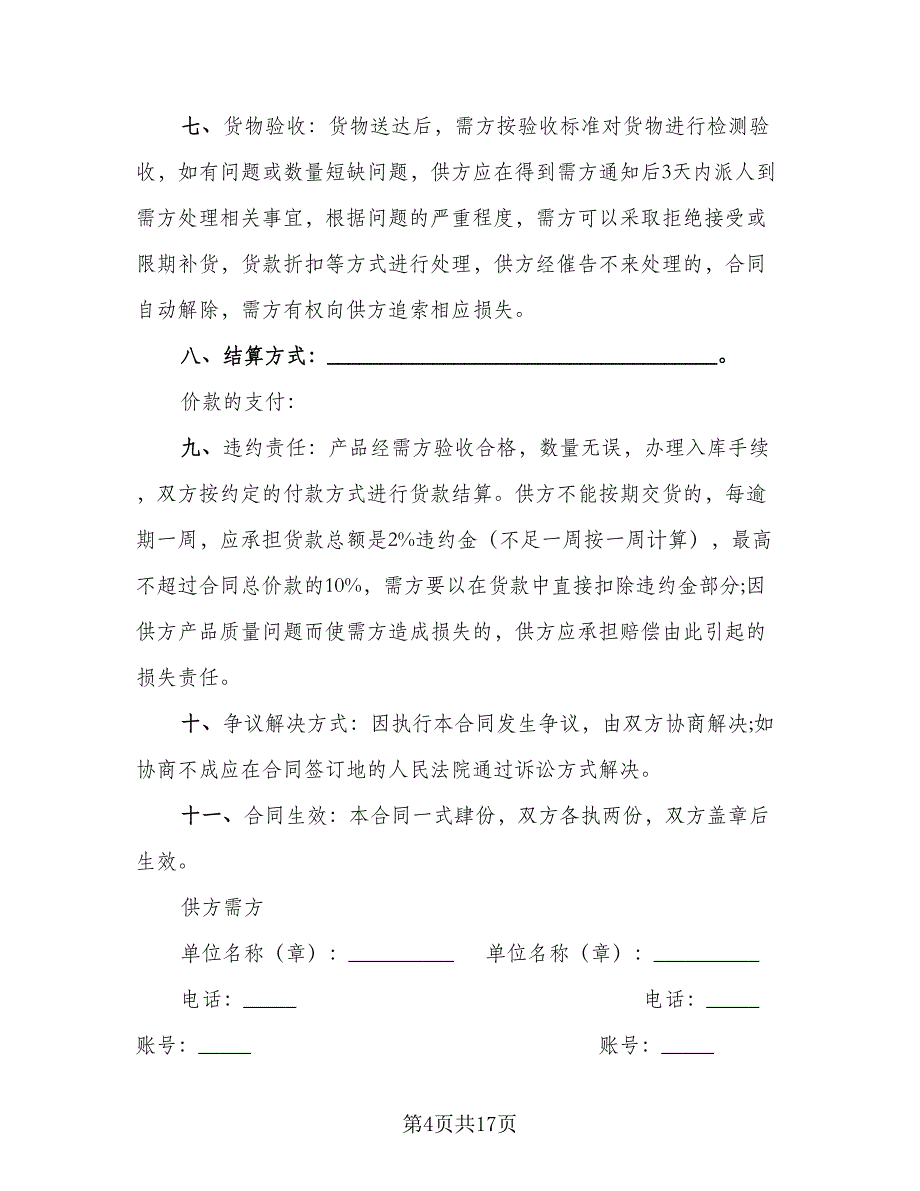 七、货物验收：货物送达后，需方按验收标准对货物进行检测验
收，如有问题或数量短缺问题，供方应在得到需方通知后3天内派人到
需方处理相关事宜，根据问题的严重程度，需方可以采取拒绝接受或
限期补货，货款折扣等方式进行处理，供方经催告不来处理的，合同
自动解除，需方有权向供方追索相应损失。
八、结算方式：_____________________________________。
价款的支付：
九、违约责任：产品经需方验收合格，数量无误，办理入库手续
，双方按约定的付款方式进行货款结算。供方不能按期交货的，每逾
期一周，应承担货款总额是2%违约金（不足一周按一周计算），最高
不超过合同总价款的10%，需方要以在货款中直接扣除违约金部分;因
供方产品质量问题而使需方造成损失的，供方应承担赔偿由此引起的
损失责任。
十、争议解决方式：因执行本合同发生争议，由双方协商解决;如
协商不成应在合同签订地的人民法院通过诉讼方式解决。
十一、合同生效：本合同一式肆份，双方各执两份，双方盖章后
生效。
供方需方
单位名称（章）：__________ 单位名称（章）：__________
电话：_____ 电话：_____
账号：_____ 账号：_____
第4页共17页